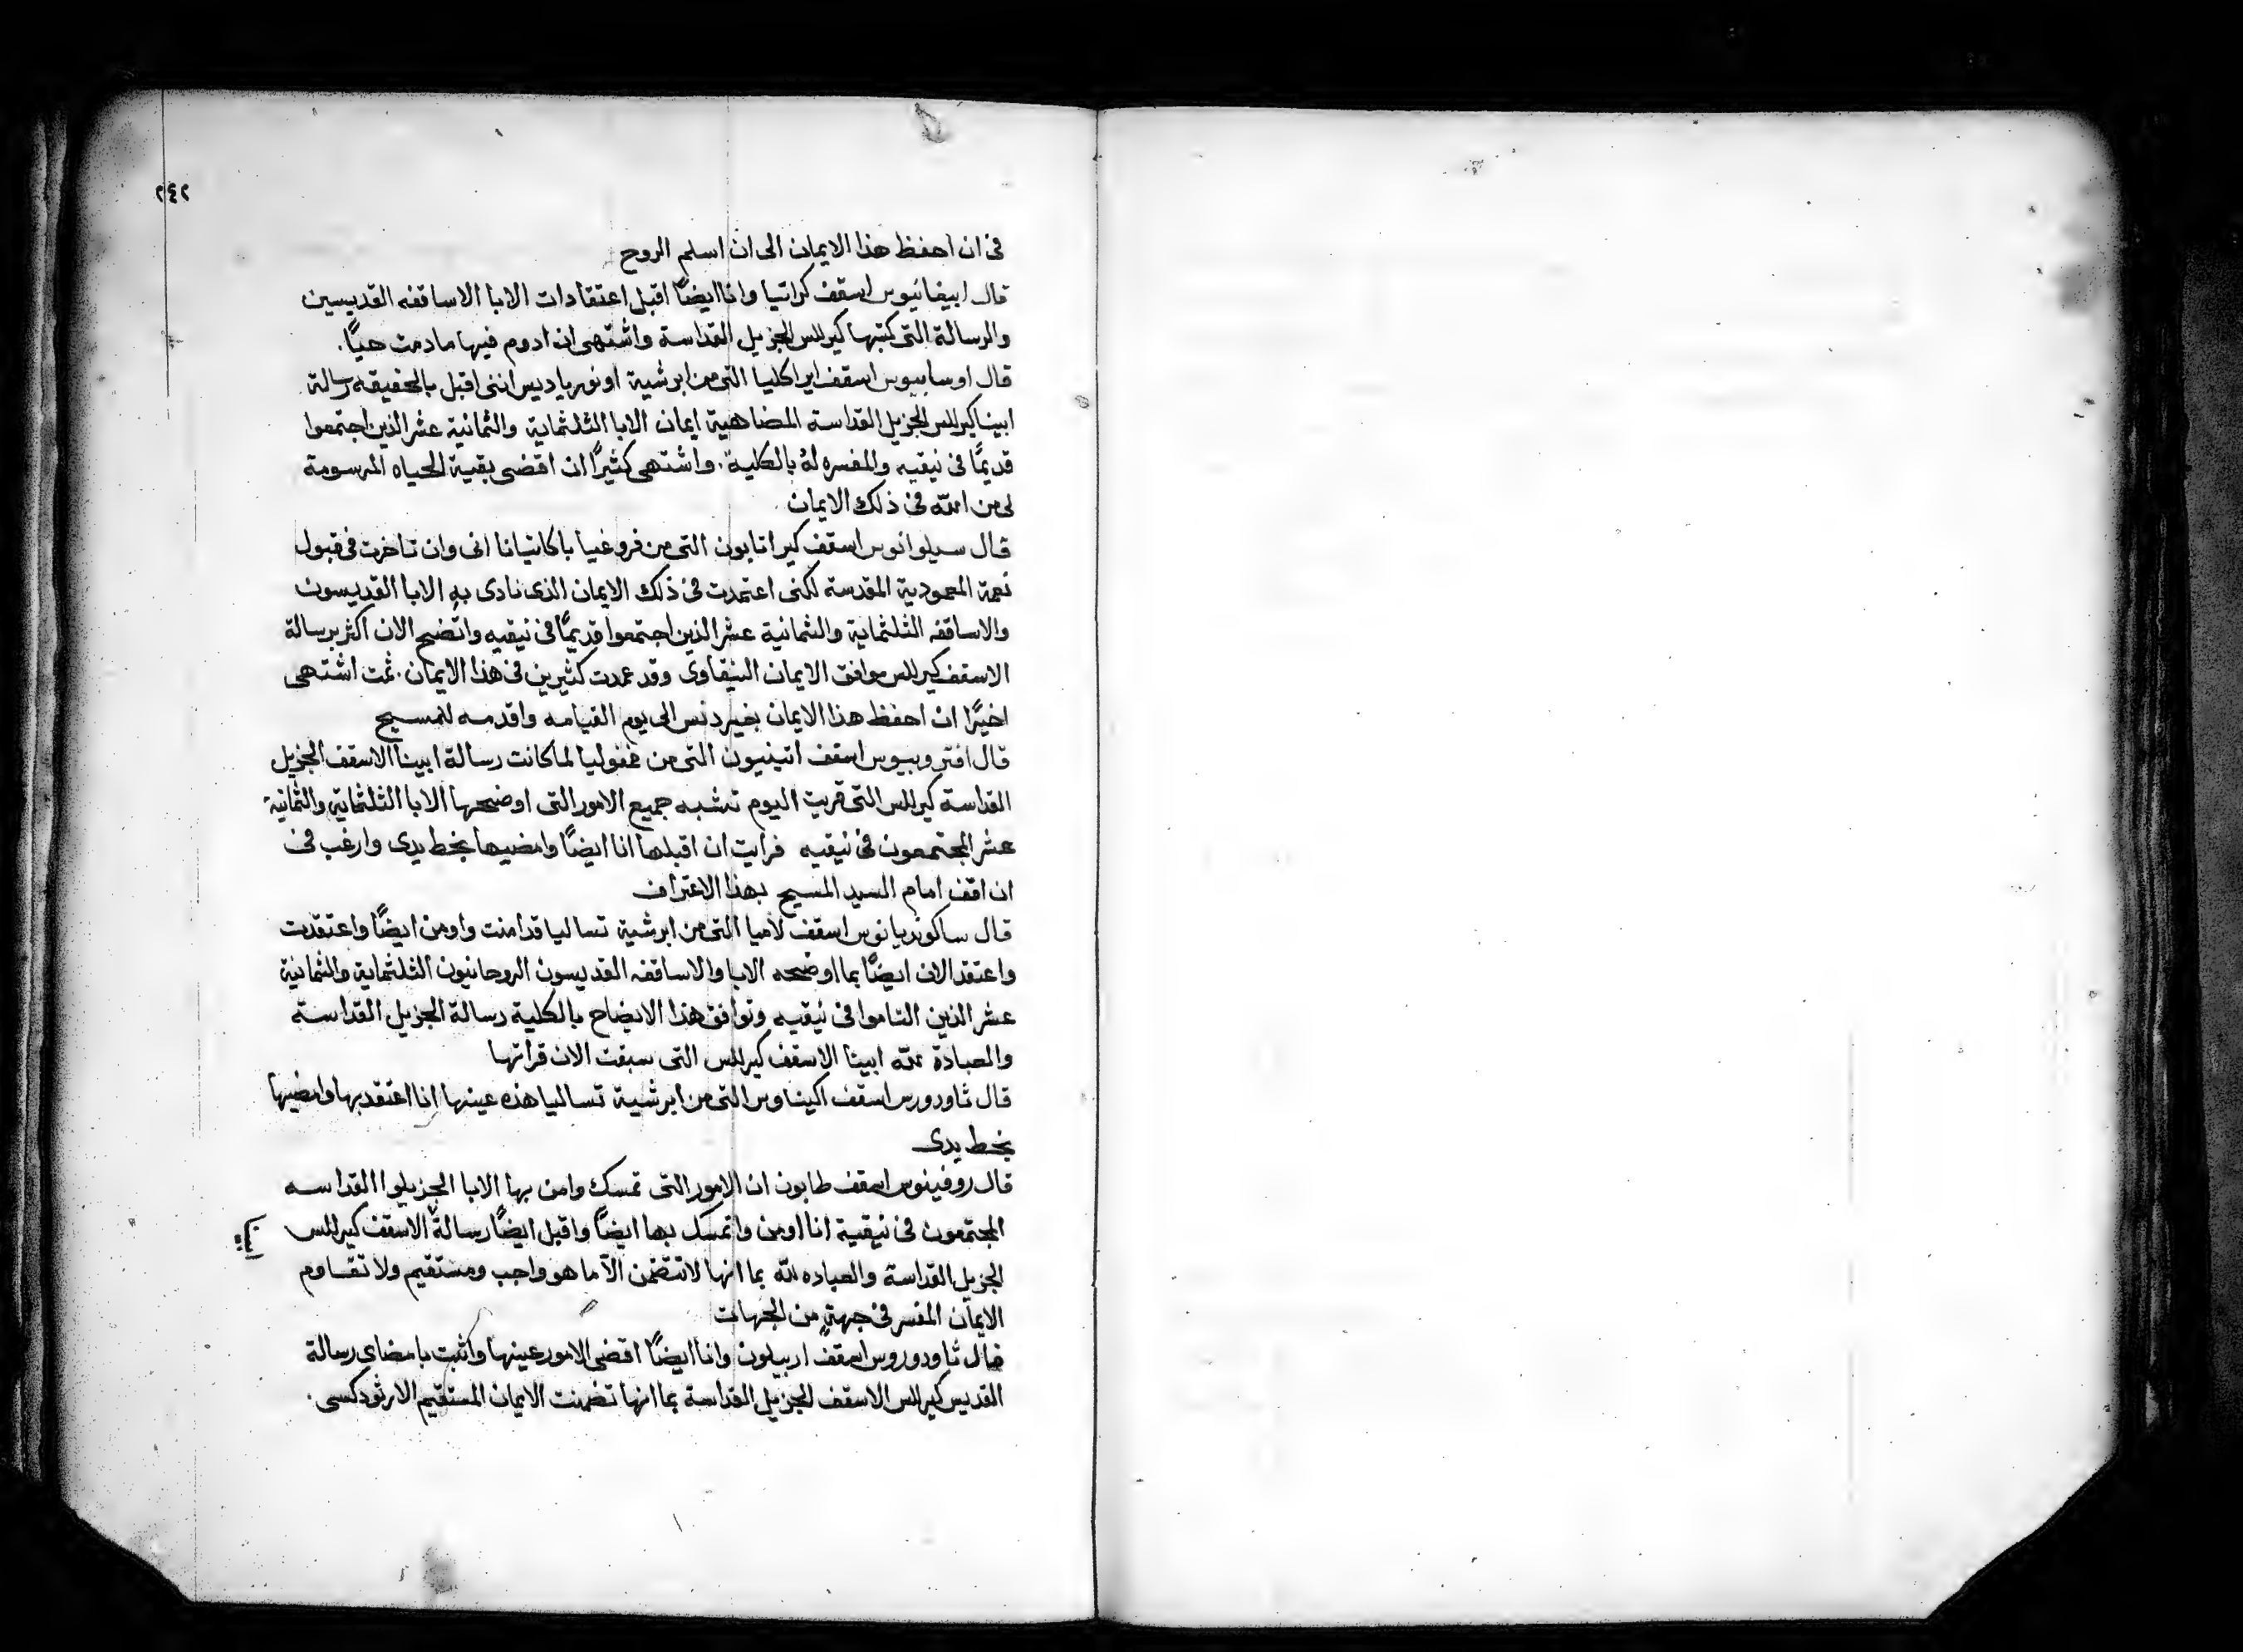 ٢٤٢
فى ان احفظ هذا الايمان الى ان اسلم الروح
قال ابيفانيوس اسقف كراتيا وانا ايضًا اقبل اعتقادات الابا الاساقفه القديسين
والرسالة التى كتبها كيرللس الجزيل القداسة واشتهى ان ادوم فيها ما دمت حيًا.
قال اوسابيوس اسقف ايراكليا التى من ابرشية اونورياديس اننى اقبل بالحقيقه رسالة
ابينا كيرللس الجزيل القداسة المضاهية ايمان الابا الثلثماية والثمانية عشر الذين اجتمعوا
قديمًا فى نيقيه والمفسره لهُ بالكلية. واشتهى كثيرًا ان اقضى بقية الحياه المرسومة
لى من الله فى ذلك الايمان
قال سيلوانوس اسقف كيراتابون التى من فروغيا باكاتيانا انى وان تاخرت فى قبول
نعمة المعمودية المقدسة لكنى اعتمدت فى ذلك الايمان الذى نادى بهِ الابا القديسون
والاساقفه الثلثماية والثمانية عشر الذين اجتمعوا قديمًا فى نيقيه واتضح الان اكثر برسالة
الاسقف كيرللس موافق الايمان النيقاوى وقد عمدت كثيرين فى هذا الايمان. ثمت اشتهى
اخيرًا ان احفظ هذا الايمان بغير دنس الى يوم القيامه واقدمه للمسيح
قال افتروبيوس اسقف اتينيون التى من بمفوليا لما كانت رسالة ابينا الاسقف الجزيل
القداسة كيرللس التى قريت اليوم تشبه جميع الامور التى اوضحها الابا الثلثماية والثمانية
عشر المجتمعون فى نيقيه فرايت ان اقبلها انا ايضًا وامضيها بخط يدى وارغب فى
ان اقف امام السيد المسيح بهذا الاعتراف
قال ساكونديانوس اسقف لاميا التى من ابرشية تساليا قد امنت واومن ايضًا واعتقدت
واعتقد الان ايضًا بما اوضحه الابا والاساقفه القديسون الروحانيون الثلثماية والثمانية
عشر الذين التاموا فى نيقيه وتوافق هذا الايضاح بالكلية رسالة الجزيل القداسة
والعبادة لله ابينا الاسقف كيرللس التى سبقت الان قراتها
قال ثاودورس اسقف اكيناوس التى من ابرشية تساليا هذه عينها انا اعتقد بها وامضيها
بخط يدى
قال روفينوس اسقف طابون ان الامور التى تمسك وامن بها الابا الجزيلوا القداسه
المجتمعون فى نيقية انا اومن واتمسك بها ايضًا واقبل ايضًا رسالة الاسقف كيرللس
الجزيل القداسة والعباده لله بما انها لا تتضمن الا ما هو واجب ومستقيم ولا تقاوم
الايمان المفسر فى جهةٍ من الجهات
قال ثاودوروس اسقف اربيلون وانا ايضًا اقضى الامور عينها واثبت بامضاى رسالة
القديس كيرللس الاسقف الجزيل القداسة بما انها تضمنت الايمان المستقيم الارثودكسى.